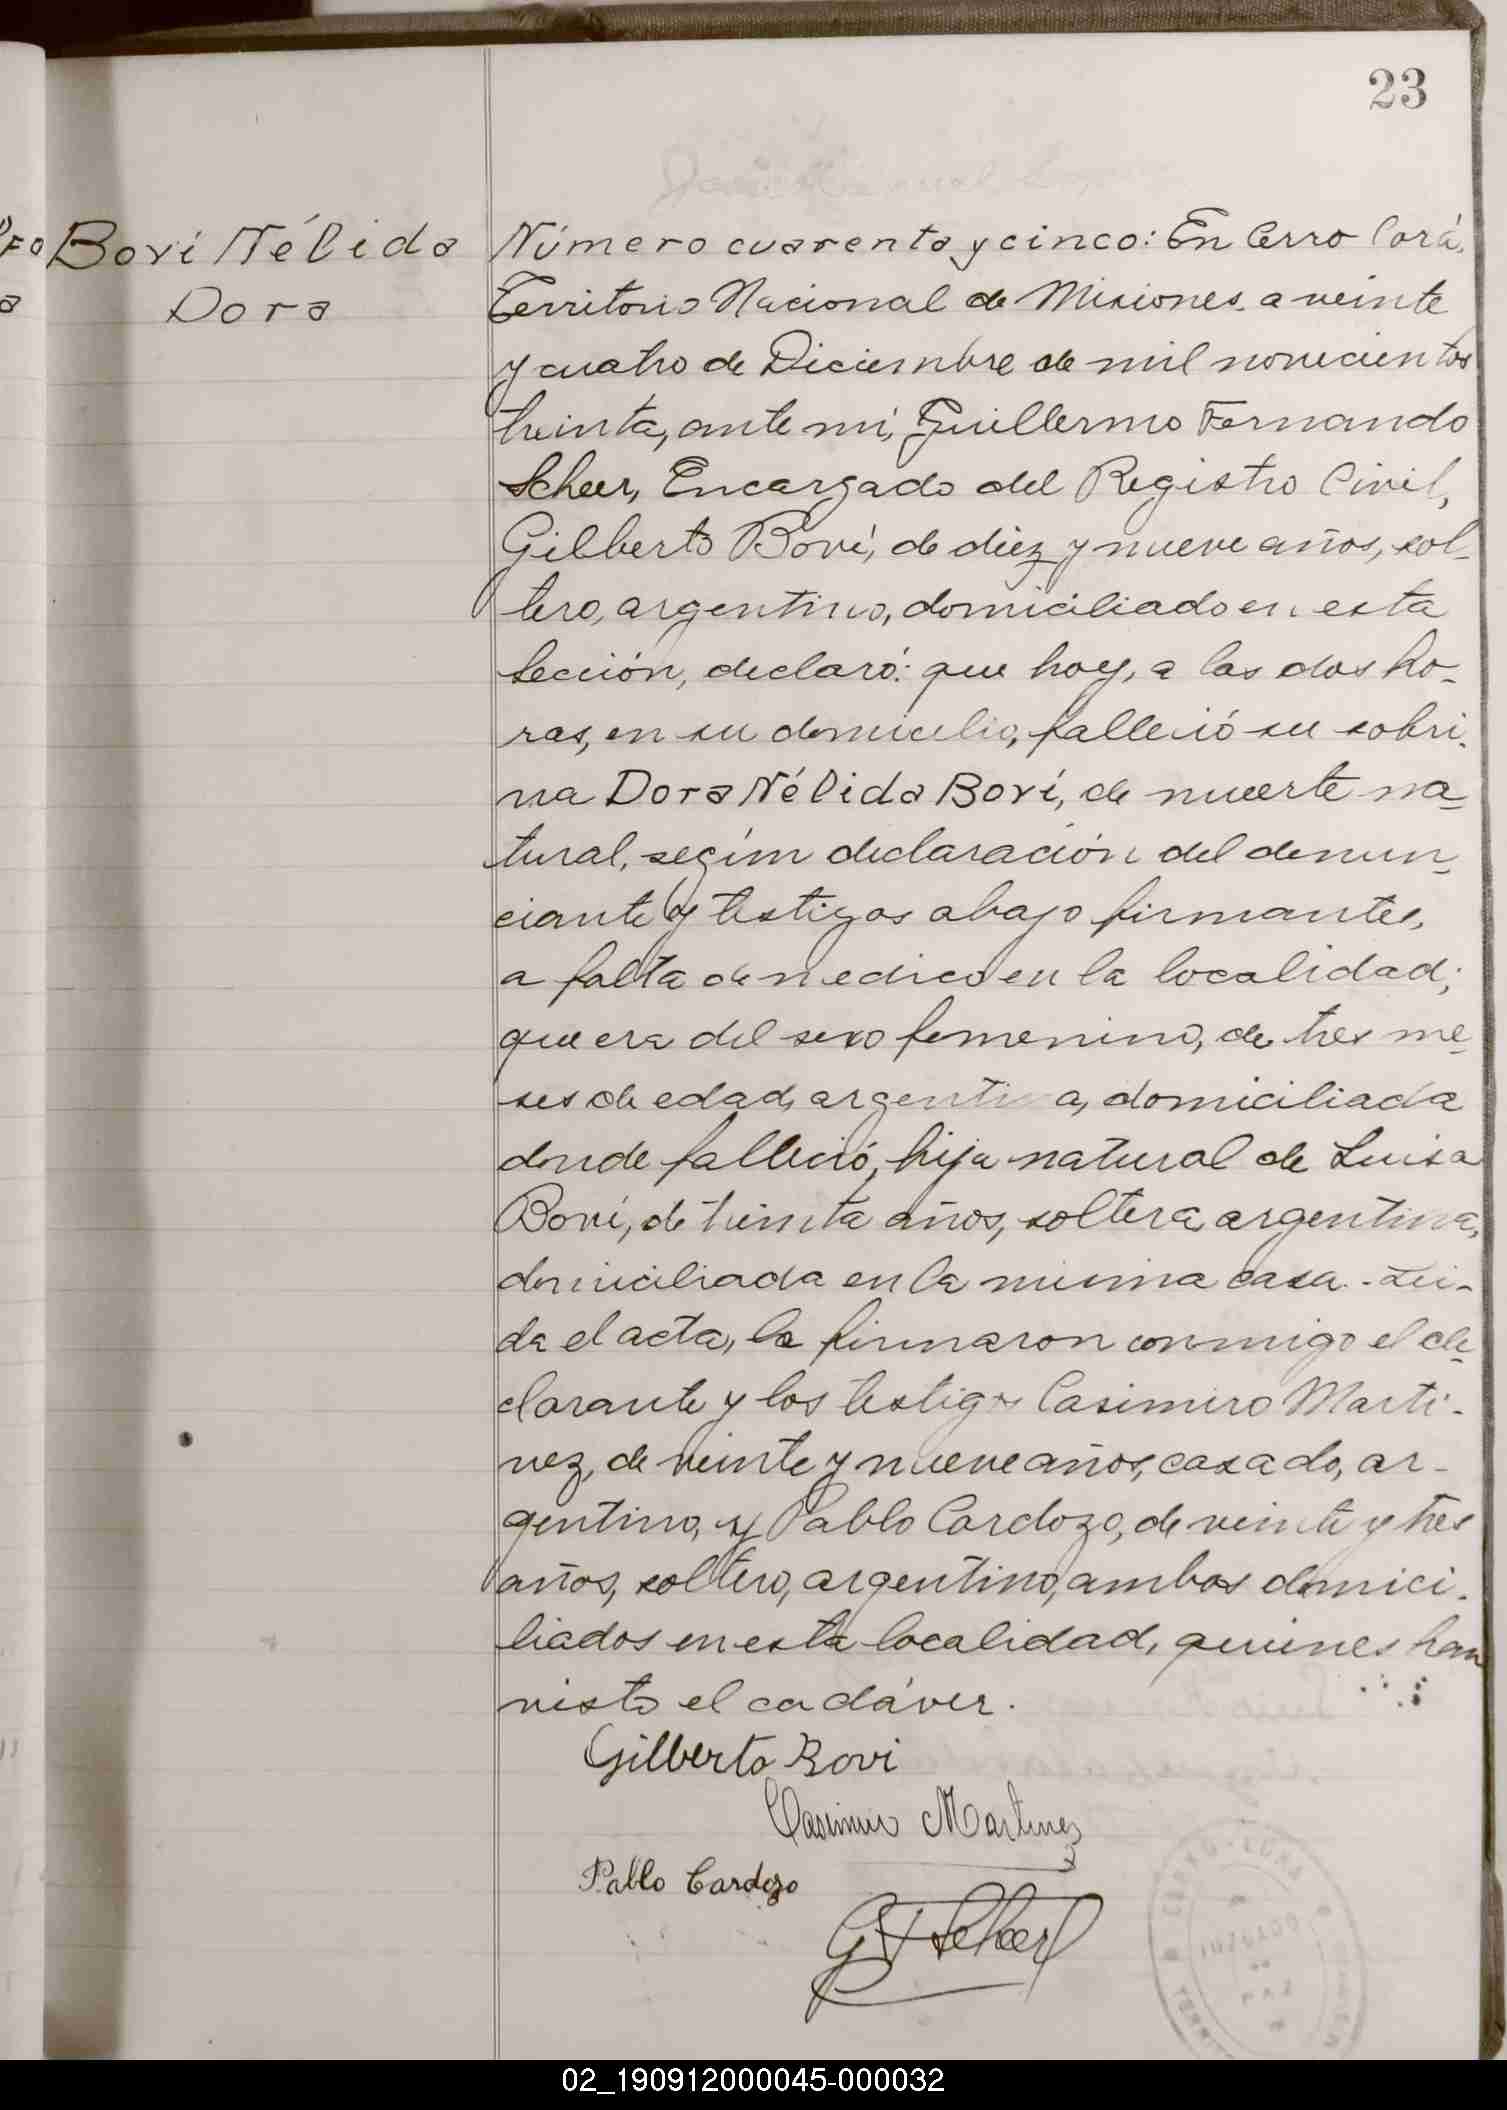 23
Boví Nélida
Dora
Número cuarenta y cinco: En Cerro Corá,
Territorio Nacional de Misiones a veinte
y cuatro de Diciembre de mil novecientos
treinta, ante mí, Guillermo Fernando
Scheer, Encargado del Registro Civil,
Gilberto Boví, de diez y nueve años, sol-
tero, argentino, domiciliado en esta
sección, declaró: que hoy, a las dos ho-
ras, en su domicilio, falleció su sobri-
na Dora Nélida Boví, de muerte na-
tural, según declaración del denun-
ciante y testigos abajo firmantes,
a falta de medico en la localidad;
que era del sexo femenino, de tres me-
ses de edad, argentina, domiciliada
donde falleció, hija natural de Luisa
Boví, de treinta años, soltera, argentina,
domiciliada en la misma casa.- Leí-
da el acta, la firmaron conmigo el de-
clarante y los testigos Casimiro Martí-
nez, de veinte y nueve años, casado, ar-
gentino, y Pablo Cardozo, de veinte y tres
años, soltero, argentino, ambos domici-
liados en esta localidad, quienes han
visto el cadáver.
Gilberto Bovi
Casimiro Martinez
Pablo Cardozo
G F Scheer
02_190912000045-000032